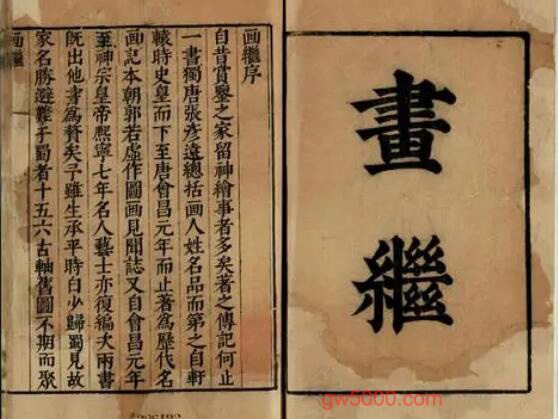 畫繼
画繼序
自昔賞鑒之家留神繪事者多矣著之傳記何止
一書獨唐張彦遠總括画人姓名品而第之自軒
轅時史皇而下至唐會昌元年而止著為歷代名
画記本朝郭若虛作圖画見聞誌又自會昌元年
至神宗皇帝熙寧七年名人藝士亦復編次兩書
既出他書為贅矣予雖生承平時自少歸蜀見故
家名勝避難于蜀者十五六古軸舊圖不期而聚
画繼
gw5000.com